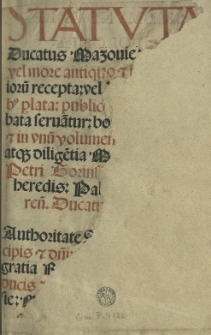 STATVTA
Ducatus Mazouie
vel more antiquo &
iorū recepta: vel
plata: public
bata seruātur: bo
& in vnū volumen
atqꝫ diligētia M
Petri Gorins
heredis: Pal
reñ. Ducat
Authoritate S
cipis & dñi
gratia
ducis
sie: